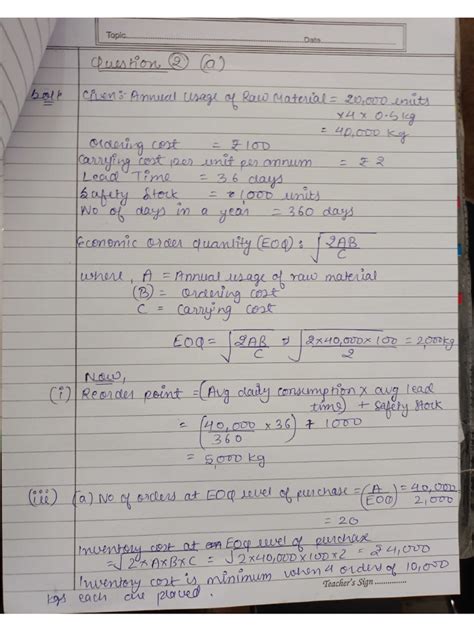 Topic
Date
Question (2) (a)
Soln Given: Annual Usage of Raw Material = 20,000 units
x4 x 0.5 kg
= 40,000 kg
Ordering cost = ₹100
Carrying cost per unit per annum = ₹ 2
Lead Time = 36 days
Safety Stock = 1,000 units
No of days in a year = 360 days
Economic Order Quantity (EOQ) : √2AB/C
where, A = Annual usage of raw material
(B) = Ordering cost
C = Carrying cost
EOQ = √2AB/C = √2x40,000x100/2 = 2,000kg
Now,
(i) Reorder point = (Avg daily consumption x avg lead
time) + Safety Stock
= (40,000/360 x 36) + 1000
= 5,000 kg
(iii) (a) No of orders at EOQ level of purchase = (A/EOQ) = 40,000/2,000
= 20
Inventory cost at EOQ level of purchase
= √2xAxBxC = √2x40,000x100x2 = ₹ 4,000
Inventory cost is minimum when 4 orders of 10,000
Teacher's Sign ..............
kgs each are placed.